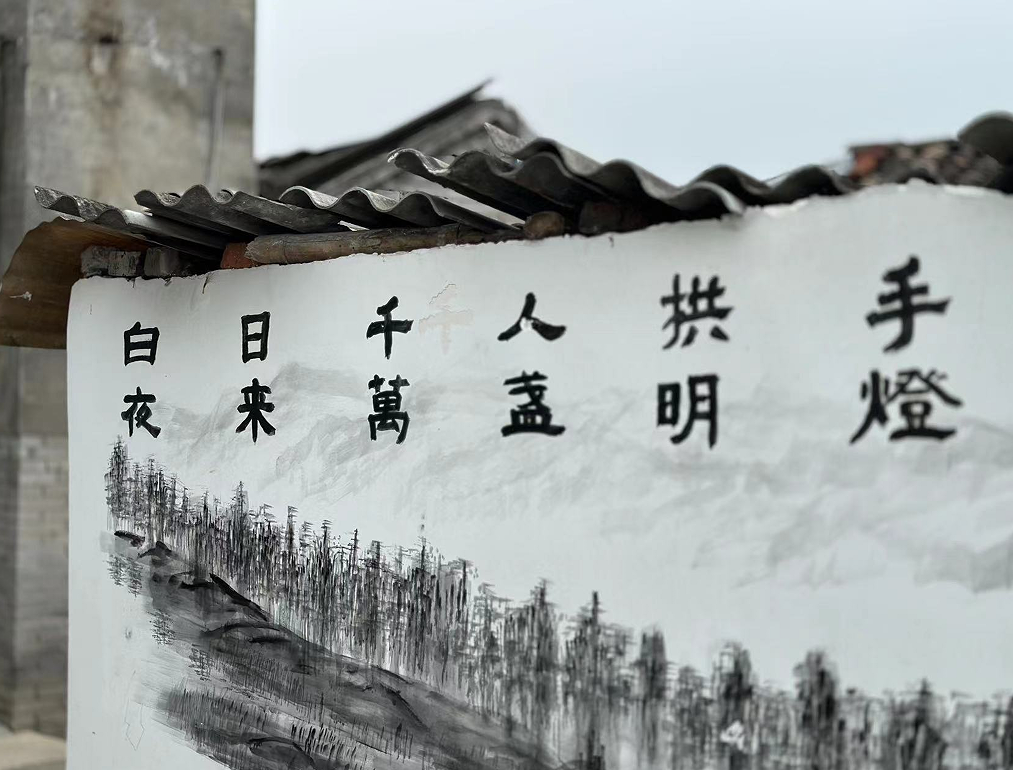 白日千人拱手
夜来萬盞明燈